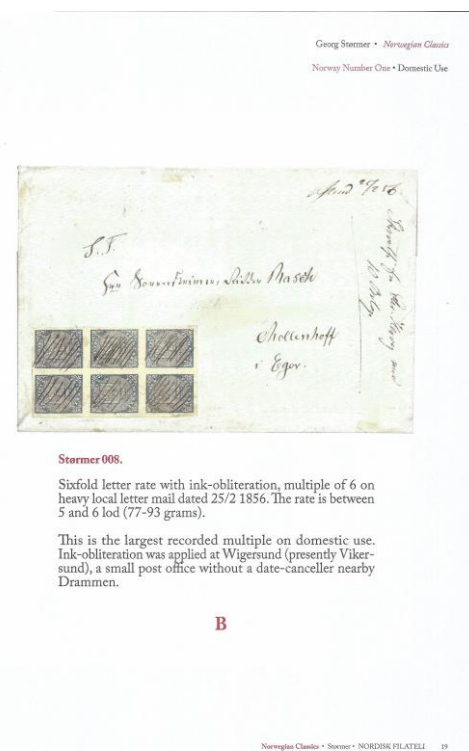 Georg Størmer • Norwegian Classics
Norway Number One • Domestic Use
S. T.
Rasch
i Eger.
Størmer 008.
Sixfold letter rate with ink-obliteration, multiple of 6 on
heavy local letter mail dated 25/2 1856. The rate is between
5 and 6 lod (77-93 grams).
This is the largest recorded multiple on domestic use.
Ink-obliteration was applied at Wigersund (presently Viker-
sund), a small post office without a date-canceller nearby
Drammen.
B
Norwegian Classics • Størmer • NORDISK FILATELI 19